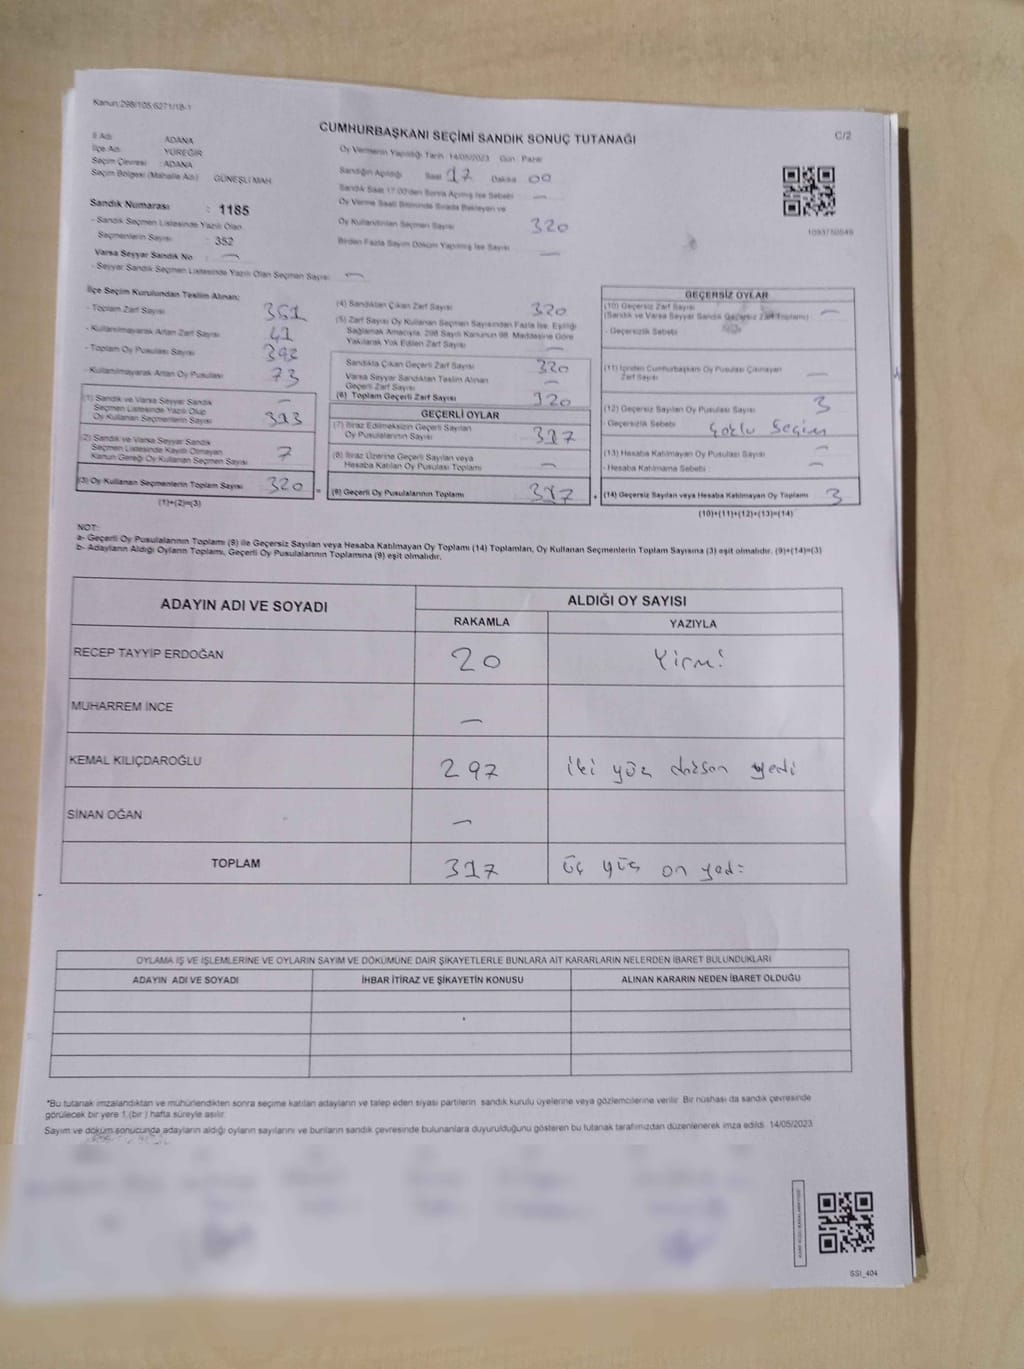 Kanun:298/105;6271/18-1
CUMHURBAŞKANI SEÇİMİ SANDIK SONUÇ TUTANAĞI
C/2
İl Adı : ADANA
İlçe Adı : YÜREĞİR
Seçim Çevresi : ADANA
Seçim Bölgesi (Mahalle Adı) : GÜNEŞLİ MAH.
Sandık Numarası : 1185
- Sandık Seçmen Listesinde Yazılı Olan
Seçmenlerin Sayısı : 352
Varsa Seyyar Sandık No : —
- Seyyar Sandık Seçmen Listesinde Yazılı Olan Seçmen Sayısı : —
Oy Vermenin Yapıldığı Tarih : 14/05/2023 Gün : Pazar
Sandığın Açıldığı Saat 17 Dakika 00
Sandık Saat 17:00'den Sonra Açılmış İse Sebebi —
Oy Verme Saati Bitiminde Sırada Bekleyen ve
Oy Kullandırılan Seçmen Sayısı 320
Birden Fazla Sayım Döküm Yapılmış İse Sayısı —
1093750849
İlçe Seçim Kurulundan Teslim Alınan;
- Toplam Zarf Sayısı 361
- Kullanılmayarak Artan Zarf Sayısı 41
- Toplam Oy Pusulası Sayısı 393
- Kullanılmayarak Artan Oy Pusulası 73
(1) Sandık ve Varsa Seyyar Sandık —
Seçmen Listesinde Yazılı Olup
Oy Kullanan Seçmenlerin Sayısı 313
(2) Sandık ve Varsa Seyyar Sandık
Seçmen Listesinde Kayıtlı Olmayan
Kanun Gereği Oy Kullanan Seçmen Sayısı 7
(3) Oy Kullanan Seçmenlerin Toplam Sayısı 320 =
(1)+(2)=(3)
(4) Sandıktan Çıkan Zarf Sayısı 320
(5) Zarf Sayısı Oy Kullanan Seçmen Sayısından Fazla İse, Eşitliği
Sağlamak Amacıyla, 298 Sayılı Kanunun 98. Maddesine Göre
Yakılarak Yok Edilen Zarf Sayısı —
Sandıkta Çıkan Geçerli Zarf Sayısı 320
Varsa Seyyar Sandıktan Teslim Alınan
Geçerli Zarf Sayısı —
(6) Toplam Geçerli Zarf Sayısı 320
GEÇERLİ OYLAR
(7) İtiraz Edilmeksizin Geçerli Sayılan
Oy Pusulalarının Sayısı 317
(8) İtiraz Üzerine Geçerli Sayılan veya
Hesaba Katılan Oy Pusulası Toplamı —
(9) Geçerli Oy Pusulalarının Toplamı 317 +
GEÇERSİZ OYLAR
(10) Geçersiz Zarf Sayısı —
(Sandık ve Varsa Seyyar Sandık Geçersiz Zarf Toplamı)
- Geçersizlik Sebebi
(11) İçinden Cumhurbaşkanı Oy Pusulası Çıkmayan
Zarf Sayısı —
(12) Geçersiz Sayılan Oy Pusulası Sayısı 3
- Geçersizlik Sebebi Çoklu Seçim
(13) Hesaba Katılmayan Oy Pusulası Sayısı —
- Hesaba Katılmama Sebebi —
(14) Geçersiz Sayılan veya Hesaba Katılmayan Oy Toplamı 3
(10)+(11)+(12)+(13)=(14)
NOT:
a- Geçerli Oy Pusulalarının Toplamı (9) ile Geçersiz Sayılan veya Hesaba Katılmayan Oy Toplamı (14) Toplamları, Oy Kullanan Seçmenlerin Toplam Sayısına (3) eşit olmalıdır. (9)+(14)=(3)
b- Adayların Aldığı Oyların Toplamı, Geçerli Oy Pusulalarının Toplamına (9) eşit olmalıdır.
ADAYIN ADI VE SOYADI
ALDIĞI OY SAYISI
RAKAMLA YAZIYLA
RECEP TAYYİP ERDOĞAN 20 Yirmi
MUHARREM İNCE —
KEMAL KILIÇDAROĞLU 297 iki yüz doksan yedi
SİNAN OĞAN —
TOPLAM 317 üç yüz on yedi
OYLAMA İŞ VE İŞLEMLERİNE VE OYLARIN SAYIM VE DÖKÜMÜNE DAİR ŞİKAYETLERLE BUNLARA AİT KARARLARIN NELERDEN İBARET BULUNDUKLARI
ADAYIN ADI VE SOYADI İHBAR İTİRAZ VE ŞİKAYETİN KONUSU ALINAN KARARIN NEDEN İBARET OLDUĞU
*Bu tutanak imzalandıktan ve mühürlendikten sonra seçime katılan adayların ve talep eden siyasi partilerin sandık kurulu üyelerine veya gözlemcilerine verilir. Bir nüshası da sandık çevresinde
görülecek bir yere 1 (bir ) hafta süreyle asılır.
Sayım ve döküm sonucunda adayların aldığı oyların sayılarını ve bunların sandık çevresinde bulunanlara duyurulduğunu gösteren bu tutanak tarafımızdan düzenlenerek imza edildi. 14/05/2023
SSI_404